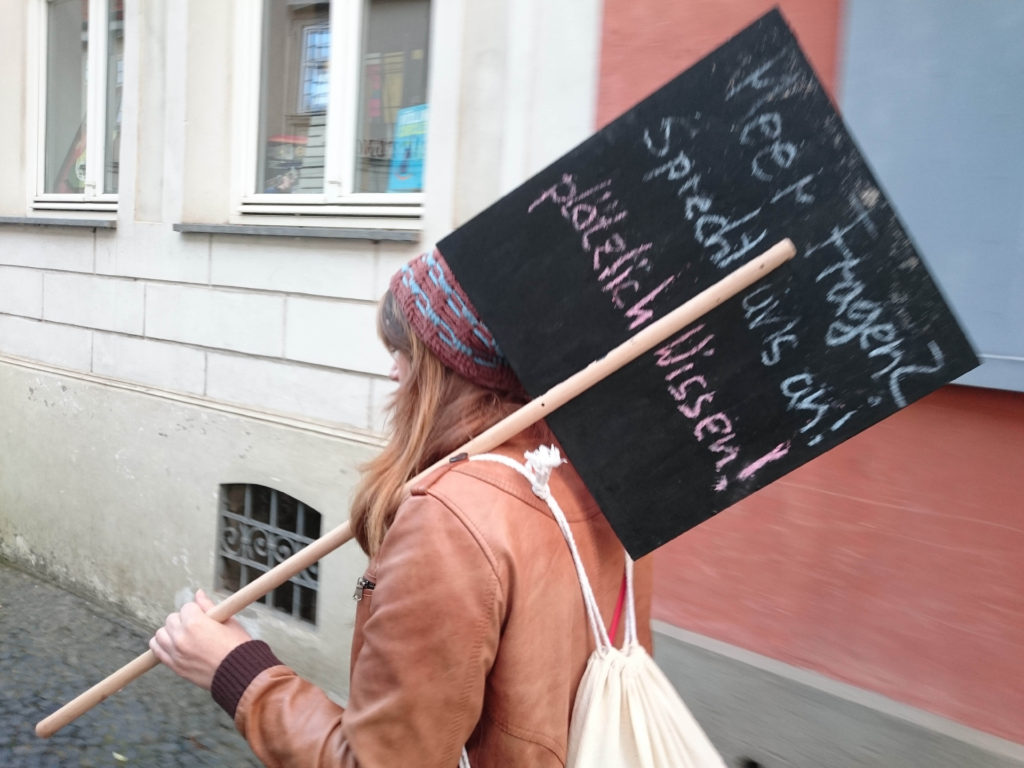 Meer Fragen?
Sprecht uns an!
plötzlich Wissen!